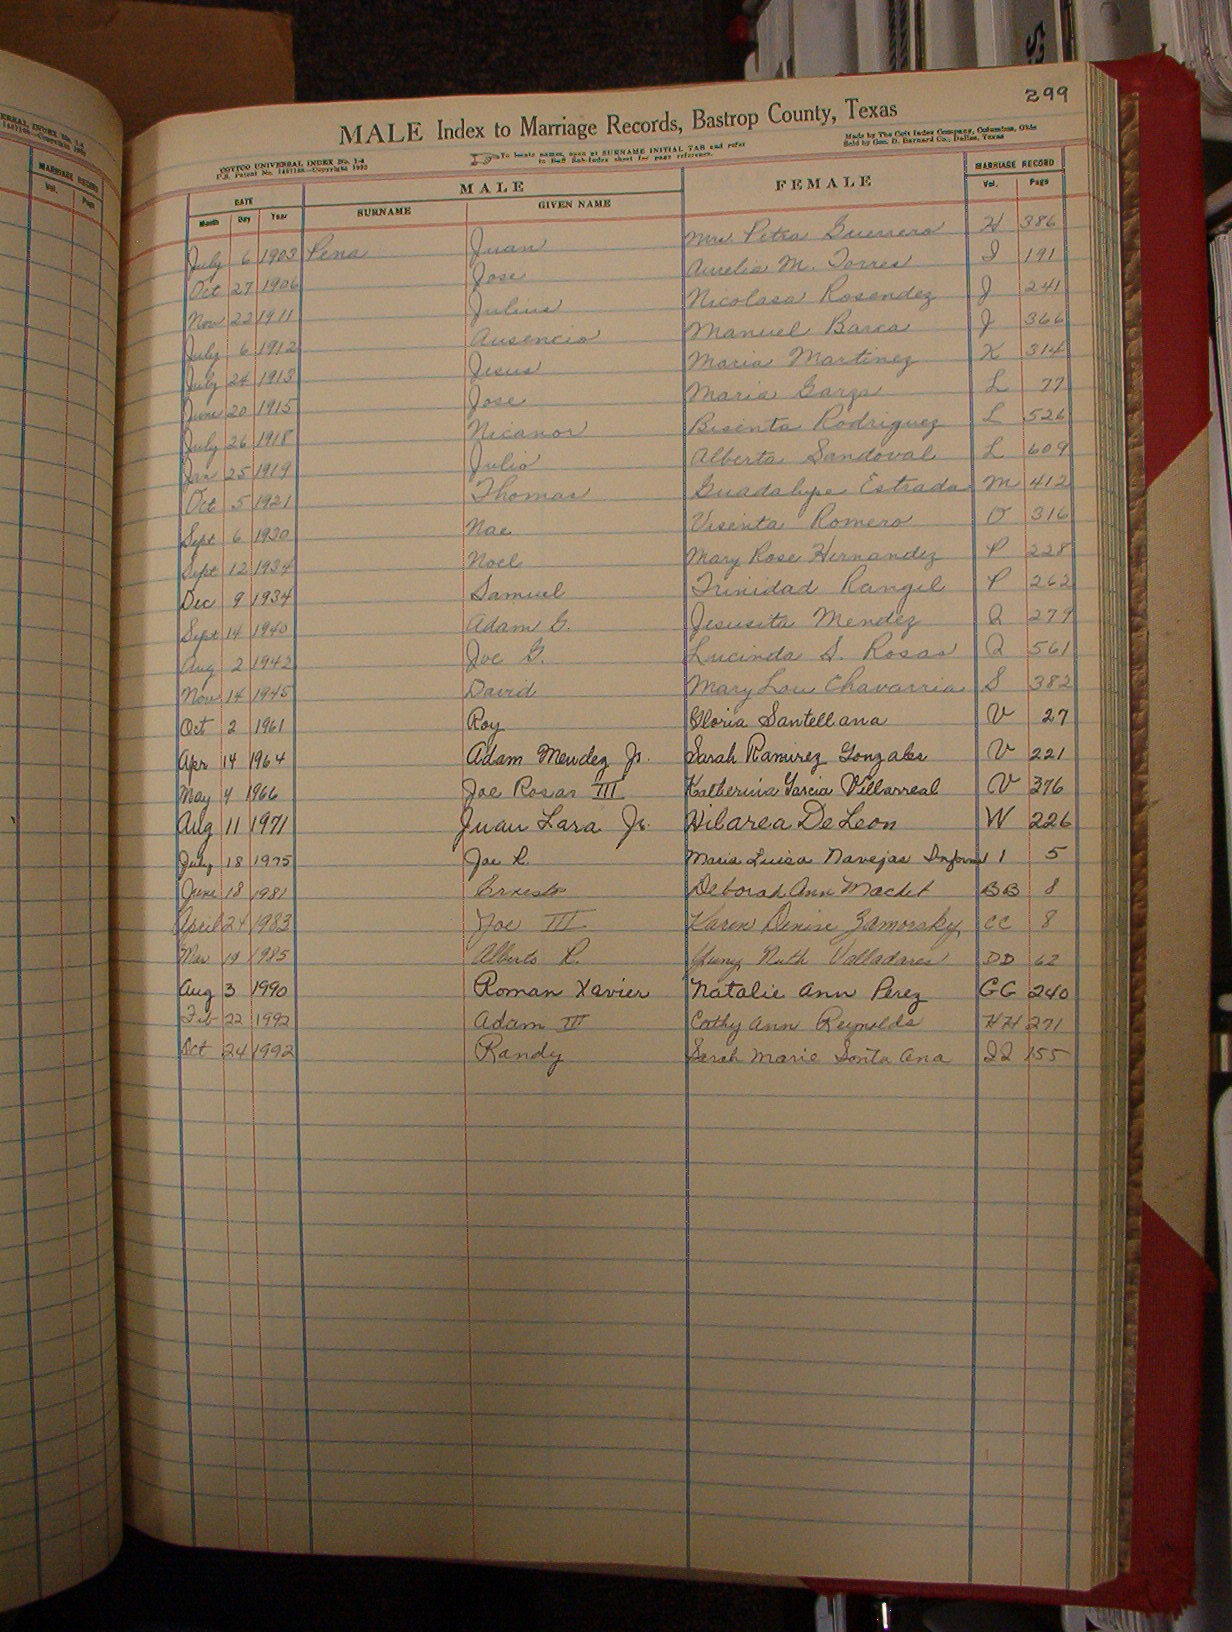 299
MALE Index to Marriage Records, Bastrop County, Texas
COTTCO UNIVERSAL INDEX No. 1-4
U.S. Patent No. 1487188—Copyright 1922
To locate names, open at SURNAME INITIAL TAB and refer
to Buff Sub-Index sheet for page reference.
Made by The Cott Index Company, Columbus, Ohio
Sold by Geo. D. Barnard Co., Dallas, Texas
DATE MALE FEMALE MARRIAGE RECORD
Month Day Year SURNAME GIVEN NAME Vol. Page
July 6 1903 Pena Juan Mrs Petra Guerrero H 386
Oct 27 1906 Jose Aurelia M. Torres I 191
Nov 22 1911 Julius Nicolasa Rosendez J 241
July 6 1912 Ausencio Manuel Barca J 366
July 24 1913 Jesus Maria Martinez K 314
June 20 1915 Jose Maria Garza L 77
July 26 1918 Nicanor Bisenta Rodriguez L 526
Jan 25 1919 Julio Alberta Sandoval L 609
Oct 5 1921 Thomas Guadalupe Estrada M 412
Sept 6 1930 Nae Visenta Romero O 316
Sept 12 1934 Noel Mary Rose Hernandez P 228
Dec 9 1934 Samuel Trinidad Rangel P 262
Sept 14 1940 Adam G. Jesusita Mendez Q 279
Aug 2 1942 Joe G. Lucinda S. Rosas Q 561
Nov 14 1945 David Mary Lou Chavarria S 382
Oct 2 1961 Roy Gloria Santellana V 27
Apr 14 1964 Adam Mendez Jr. Sarah Ramirez Gonzales V 221
May 4 1966 Joe Rosas III Katherina Garcia Villarreal V 376
Aug 11 1971 Juan Lara Jr. Hilarea De Leon W 226
July 18 1975 Joe R. Maria Luisa Navejas Informal 1 5
June 18 1981 Ernesto Deborah Ann Macht BB 8
April 24 1983 Joe III Karen Denise Zamorsky CC 8
Mar 19 1985 Alberto R. Ruth Valladares DD 62
Aug 3 1990 Roman Xavier Natalie Ann Perez GG 240
Feb 22 1992 Adam III Cathy Ann Reynolds HH 271
Oct 24 1992 Randy Sarah Marie Santa Ana II 155